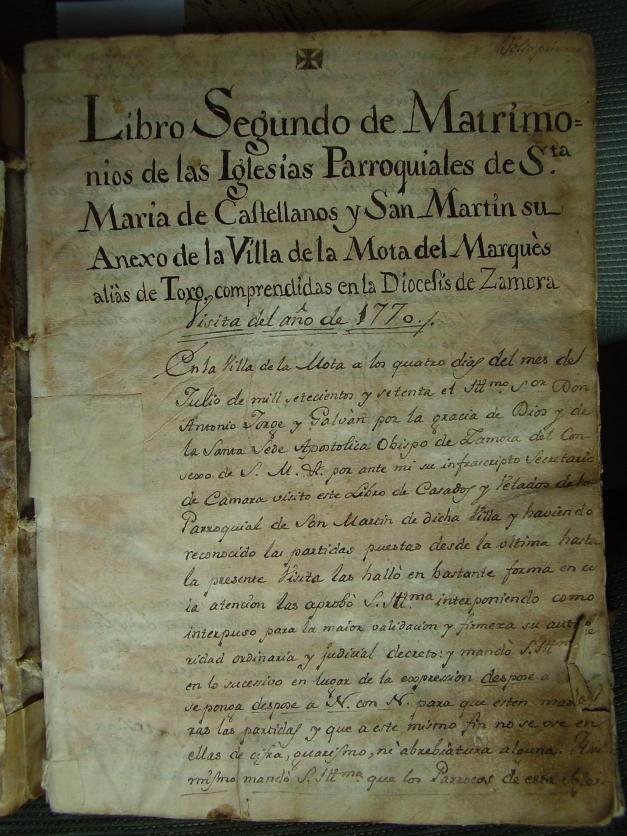 Folio primero
Libro Segundo de Matrimo=
nios de las Iglesias Parroquiales de S.ta
Maria de Castellanos y San Martin su
Anexo de la Villa de la Mota del Marquès
aliàs de Toro, comprendidas en la Diocesis de Zamora
Visita del año de 1770.
En la Villa de la Mota a los quatro dias del mes de
Julio de mill setecientos y setenta el Ill.mo S.or Don
Antonio Jorge y Galvàn por la gracia de Dios y de
la Santa Sede Apostolica Obispo de Zamora del Con-
sexo de S. M. &. por ante mi su infrascripto Secretario
de Camara visito este Libro de Casados y Velados de la
Parroquial de San Martin de dicha Villa y haviendo
reconocido las partidas puestas desde la ultima hasta
la presente Visita las hallò en bastante forma en cu
ia atencion las aprobò S. Ill.ma interponiendo como
interpuso para la maior validacion y firmeza su auto
ridad ordinaria y judicial decreto: y mandò S. Ill.ma
en lo sucessivo en lugar de la expression despose a
se ponga despose a N. con N. para que esten mas
ras las partidas y que a este mismo fin no se use en
ellas de cifra, guarismo, ni abrebiatura alguna.
mismo mandò S. Ill.ma que los Parrocos de esta